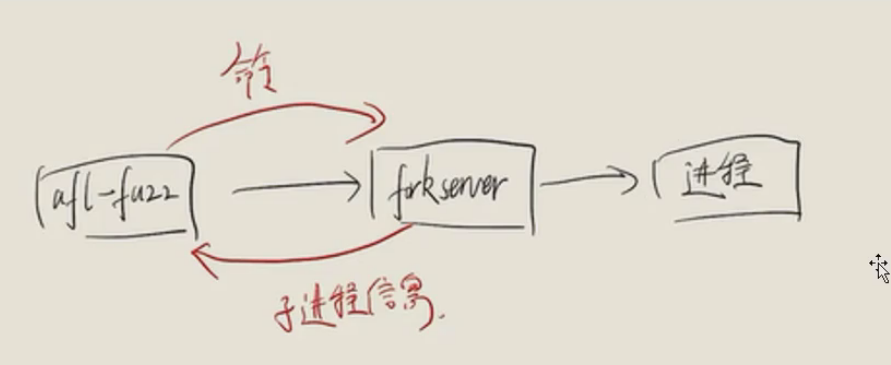 命令
afl-fuzz
forkserver
进程
子进程信息.